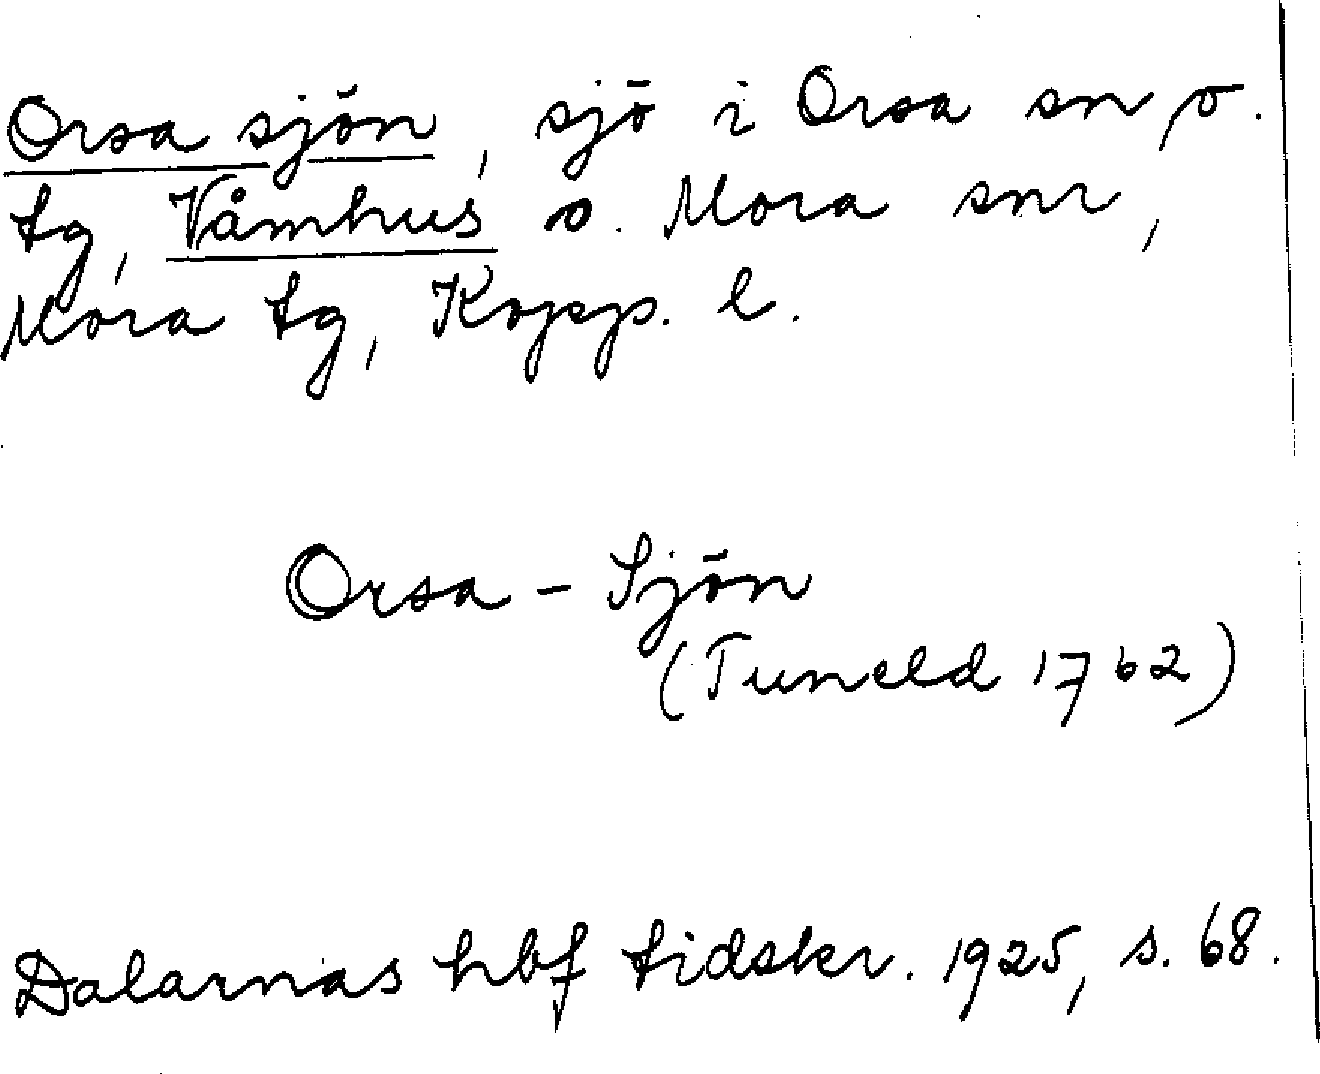 Orsa sjön, sjö i Orsa sn, o.
tg, Våmhus o. Mora snr,
Mora tg, Kopp. l.
Orsa - Sjön
(Tuneld 1762)
Dalarnas hbf tidskr. 1925, s. 68.